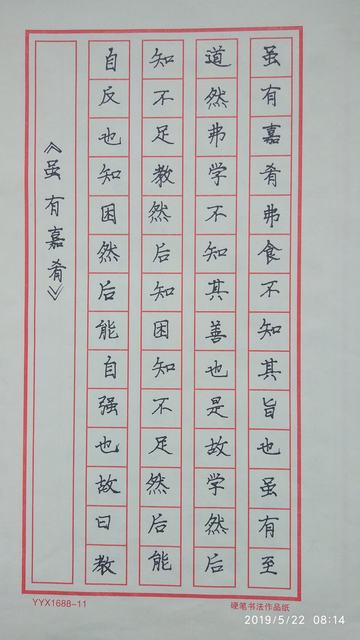 虽有嘉肴弗食不知其旨也虽有至
道然弗学不知其善也是故学然后
知不足教然后知困知不足然后能
自反也知困然后能自强也故曰教
《虽有嘉肴》
YYX1688-11
硬笔书法作品纸
2019/5/22 08:14